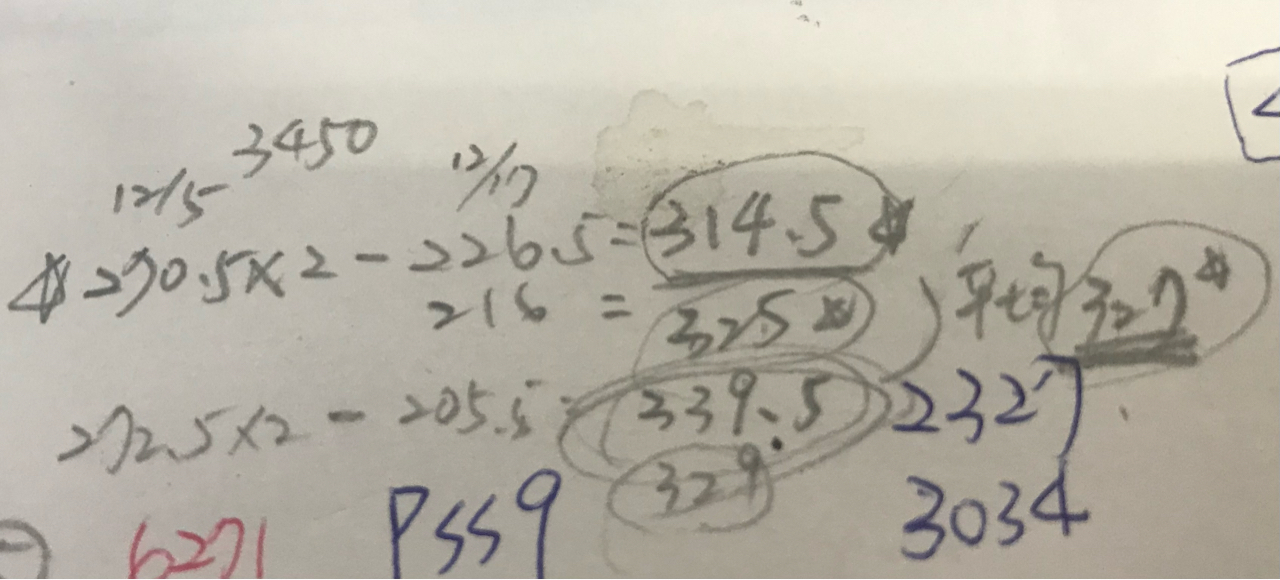 3450
12/5 12/17
270.5×2 - 226.5 = 314.5
216 = 325 平均 327
272.5×2 - 205.5 339.5 2327
329
6271 PSS9 3034